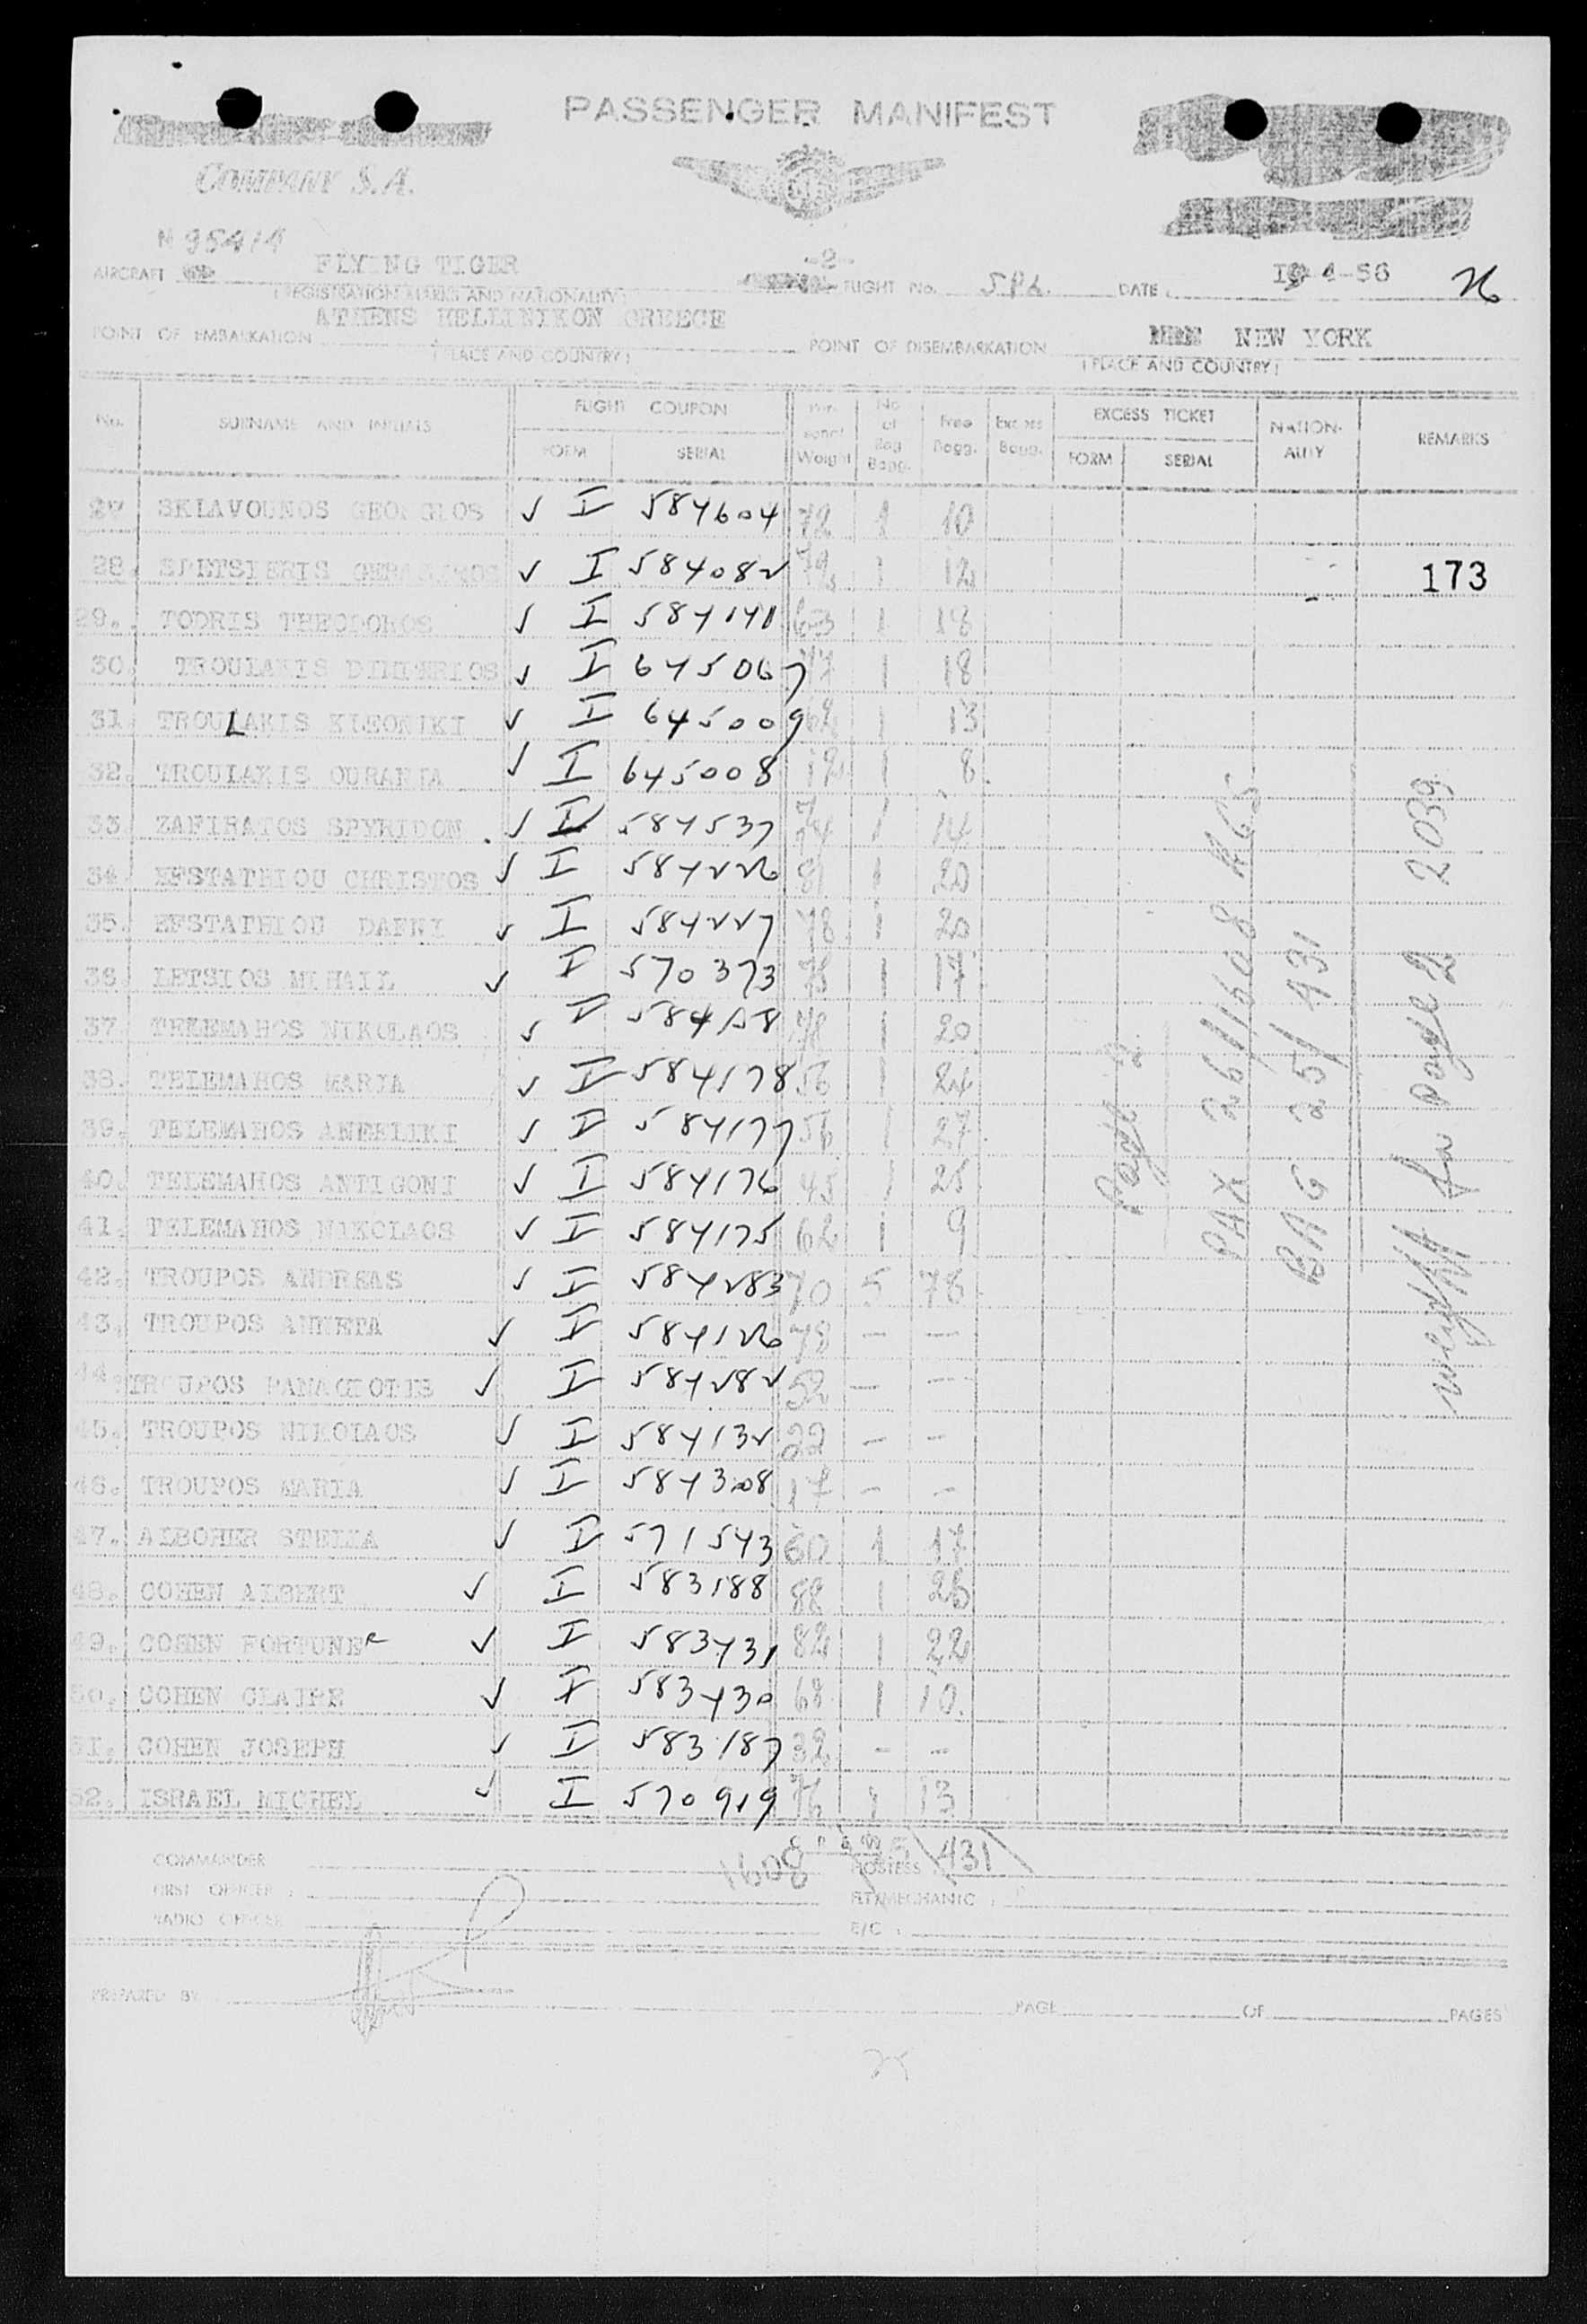 PASSENGER MANIFEST
COMPANY S.A.
N 95414
-2-
AIRCRAFT FLYING TIGER FLIGHT No. DATE: -4-56 26
(REGISTRATION MARKS AND NATIONALITY)
POINT OF EMBARKATION ATHENS HELLINIKON GREECE POINT OF DISEMBARKATION NEW YORK
(PLACE AND COUNTRY) (PLACE AND COUNTRY)
No. SURNAME AND INITIALS FLIGHT COUPON FORM SERIAL Weight No of Bag Bagg. Free Bagg. Excess Bagg. EXCESS TICKET FORM SERIAL NATION-ALITY REMARKS
27 SKLAVOUNOS GEORGIOS ✓ I 584604 72 1 10
28. SPETSIERIS GERASIMOS ✓ I 584082 1 12 173
29. TODRIS THEODOROS ✓ I 584141 63 1 18
30. TROULAKIS DIMITRIOS ✓ I 645067 77 1 18
31. TROULAKIS KLEONIKI ✓ I 645009 62 1 13
32. TROULAKIS OURANIA ✓ I 645008 12 1 8
33 ZAFIRATOS SPYRIDON ✓ I 584537 74 1 14
34 EFSTATHIOU CHRISTOS ✓ I 584226 81 1 20
35. EFSTATHIOU DAFNI ✓ I 584227 78 1 20
36. LETSIOS MIHAIL ✓ I 570373 75 1 17
37. TELEMAHOS NIKOLAOS ✓ I 78 1 20
38. TELEMAHOS MARIA ✓ I 584178 56 1 24
39. TELEMAHOS ANGELIKI ✓ I 584177 56 1 27
40. TELEMAHOS ANTIGONI ✓ I 584176 45 1 25
41. TELEMAHOS NIKOLAOS ✓ I 584175 62 1 9
42. TROUPOS ANDREAS ✓ I 584283 70 5 78
43. TROUPOS ANNETA ✓ I 584126 78 — —
44 TROUPOS PANAGIOTIS ✓ I 584282 52 — —
45. TROUPOS NIKOLAOS ✓ I 584132 22 — —
46. TROUPOS MARIA ✓ I 584308 17 — —
47. ALBOHER STELLA ✓ I 571543 60 1 17
48. COHEN ALBERT ✓ I 583188 88 1 26
49. COHEN FORTUNEE ✓ I 583431 82 1 22
50. COHEN CLAIRE ✓ I 583430 68 1 10
51. COHEN JOSEPH ✓ I 583187 32 — —
52. ISRAEL MICHEL ✓ I 570919 76 1 13
Page 2
PAX 26/1608 KGS
BAG 25/431
weight for page 2 2039
CREW
1608 25/431
COMMANDER HOSTESS
FIRST OFFICER: FLT/MECHANIC:
RADIO OFFICER E/C:
PREPARED BY PAGE OF PAGES